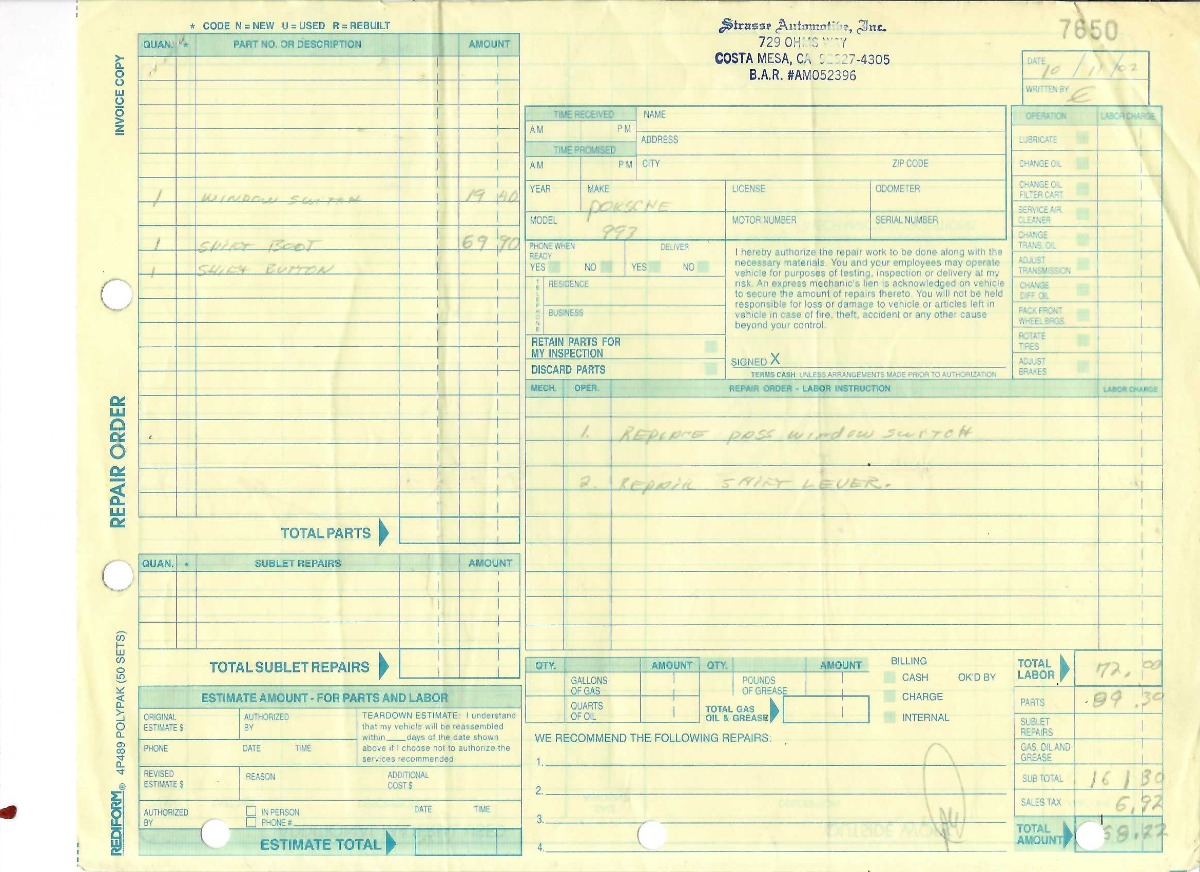 * CODE N = NEW U = USED R = REBUILT
Strasse Automotive, Inc.
729 OHMS WAY
COSTA MESA, CA 92627-4305
B.A.R. #AM052396
7650
DATE 10 / 11 / 02
WRITTEN BY
INVOICE COPY
REPAIR ORDER
REDIFORM® 4P489 POLYPAK (50 SETS)
QUAN. * PART NO. OR DESCRIPTION AMOUNT
1 WINDOW SWITCH 19
1 SHIFT BOOT 69 90
1 SHIFT BUTTON
TOTAL PARTS
QUAN. * SUBLET REPAIRS AMOUNT
TOTAL SUBLET REPAIRS
ESTIMATE AMOUNT - FOR PARTS AND LABOR
ORIGINAL ESTIMATE $
AUTHORIZED BY
PHONE DATE TIME
TEARDOWN ESTIMATE: I understand
that my vehicle will be reassembled
within ____ days of the date shown
above if I choose not to authorize the
services recommended
REVISED ESTIMATE $
REASON
ADDITIONAL COST $
AUTHORIZED BY
IN PERSON
PHONE #
DATE TIME
ESTIMATE TOTAL
TIME RECEIVED
AM PM
TIME PROMISED
AM PM
NAME
ADDRESS
CITY ZIP CODE
YEAR MAKE LICENSE ODOMETER
PORSCHE
MODEL MOTOR NUMBER SERIAL NUMBER
993
PHONE WHEN READY
YES NO
DELIVER
YES NO
TELEPHONE
RESIDENCE
BUSINESS
RETAIN PARTS FOR
MY INSPECTION
DISCARD PARTS
I hereby authorize the repair work to be done along with the
necessary materials. You and your employees may operate
vehicle for purposes of testing, inspection or delivery at my
risk. An express mechanic's lien is acknowledged on vehicle
to secure the amount of repairs thereto. You will not be held
responsible for loss or damage to vehicle or articles left in
vehicle in case of fire, theft, accident or any other cause
beyond your control.
SIGNED X
TERMS CASH: UNLESS ARRANGEMENTS MADE PRIOR TO AUTHORIZATION
OPERATION LABOR CHARGE
LUBRICATE
CHANGE OIL
CHANGE OIL FILTER CART.
SERVICE AIR CLEANER
CHANGE TRANS. OIL
ADJUST TRANSMISSION
CHANGE DIFF. OIL
PACK FRONT WHEEL BRGS.
ROTATE TIRES
ADJUST BRAKES
MECH. OPER. REPAIR ORDER - LABOR INSTRUCTION LABOR CHARGE
1. REPLACE PASS WINDOW SWITCH
2. REPAIR SHIFT LEVER.
QTY. AMOUNT QTY. AMOUNT
GALLONS OF GAS
POUNDS OF GREASE
QUARTS OF OIL
TOTAL GAS OIL & GREASE
BILLING
CASH OK'D BY
CHARGE
INTERNAL
WE RECOMMEND THE FOLLOWING REPAIRS:
1.
2.
3.
4.
TOTAL LABOR 72.00
PARTS 89.30
SUBLET REPAIRS
GAS, OIL AND GREASE
SUB TOTAL 161 30
SALES TAX 6,92
TOTAL AMOUNT